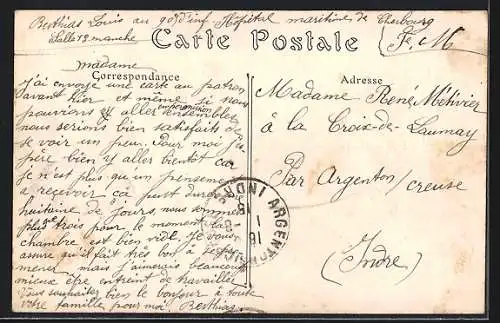 Berthias Louis au 90e d'inf Hôpital maritime de Cherbourg
Salle 12 manche
F. M
Carte Postale
Correspondance
Adresse
madame
J'ai envoyé une carte au patron
avant hier et même si nous
pouvions y aller ensembles
en permission
nous serions bien satisfaits de
se voir un peu. Pour moi j'es
père bien y aller bientôt car
je n'ai plus qu'un pansement
a recevoir ça peut durer
huitaine de jours, nous sommes
plus que trois pour le moment la
chambre est bien vide, je vous
assure qu'il fait très bon à se pro
mener, mais j'aimerais beaucoup
mieux être en train de travailler
Vous souhaitez bien le bonjour à toute
votre famille pour moi Berthias
Madame René Métivier
à la Croix-de-Launay
Par Argenton/creuse
(Indre)
ARGENTON
INDRE